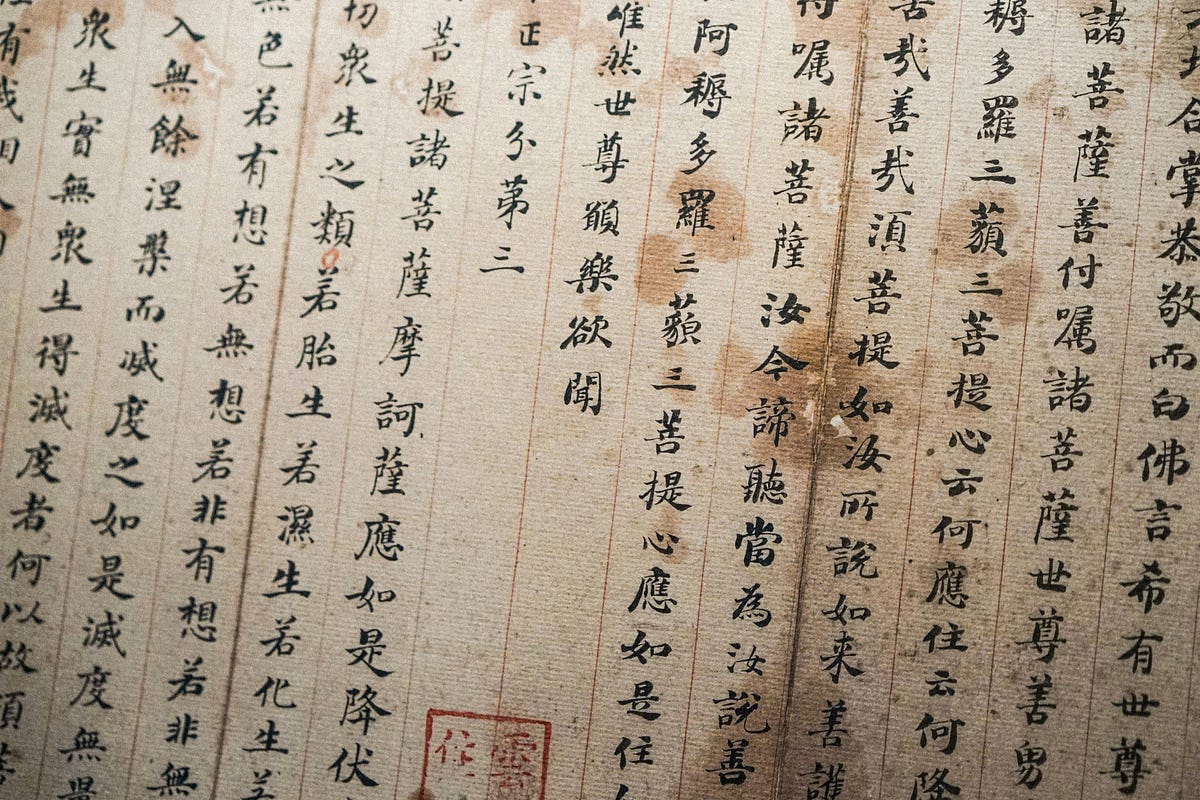 合掌恭敬而白佛言希有世尊
諸菩薩善付嘱諸菩薩世尊善男
耨多羅三藐三菩提心云何應住云何降
哉善哉湏菩提如汝所說如来善護
嘱諸菩薩汝今諦聽當為汝說善
阿耨多羅三藐三菩提心應如是住
唯然世尊願樂欲聞
正宗分苐三
菩提諸菩薩摩訶薩應如是降伏
切衆生之類若胎生若濕生若化生
色若有想若無想若非有想若非無
入無餘涅槃而滅度之如是滅度無
衆生實無衆生得滅度者何以故